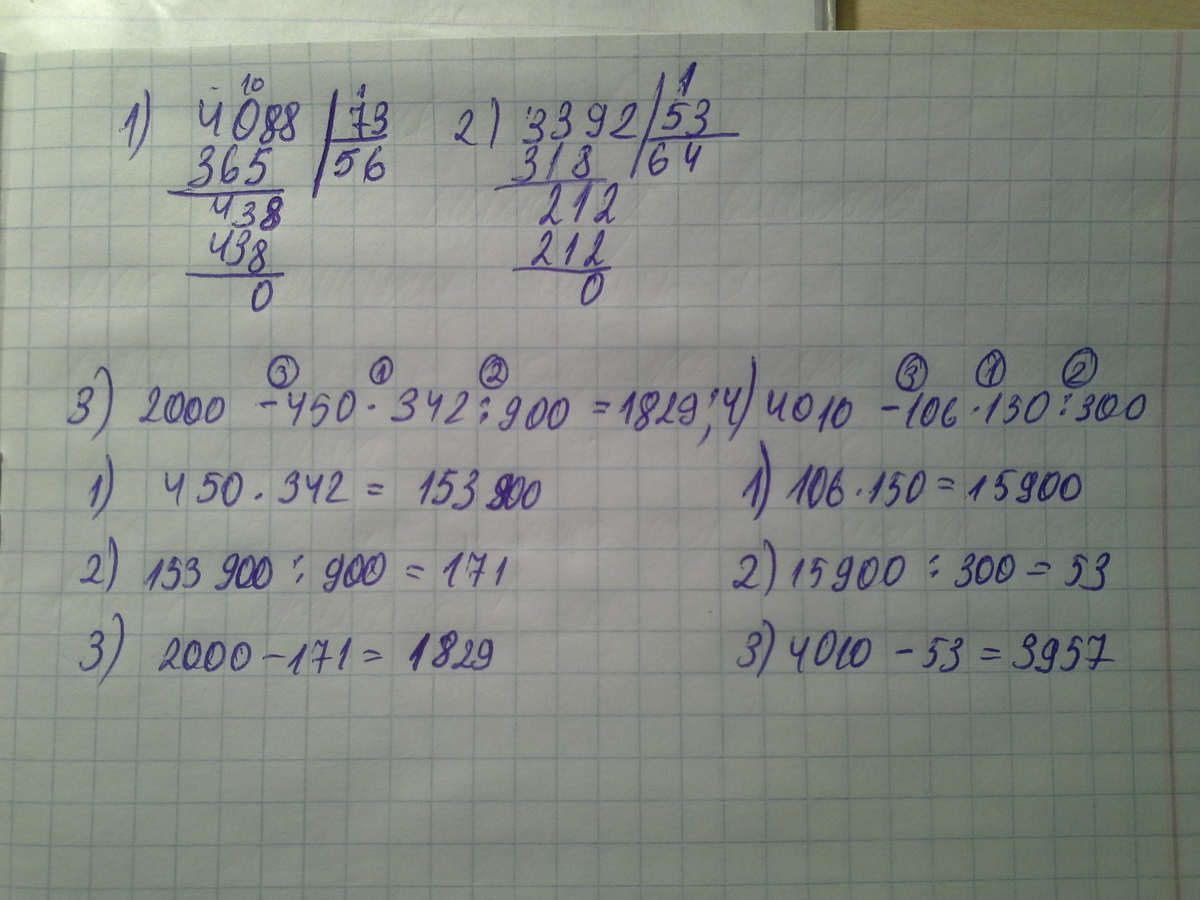 10 1 1
1) 4088 73 2) 3392 53
365 56 318 64
438 212
438 212
0 0
3 1 2 3 1 2
3) 2000 - 450 · 342 : 900 = 1829; 4) 4010 - 106 · 130 : 300
1) 450 · 342 = 153 900 1) 106 · 150 = 15900
2) 153 900 : 900 = 171 2) 15900 : 300 = 53
3) 2000 - 171 = 1829 3) 4010 - 53 = 3957